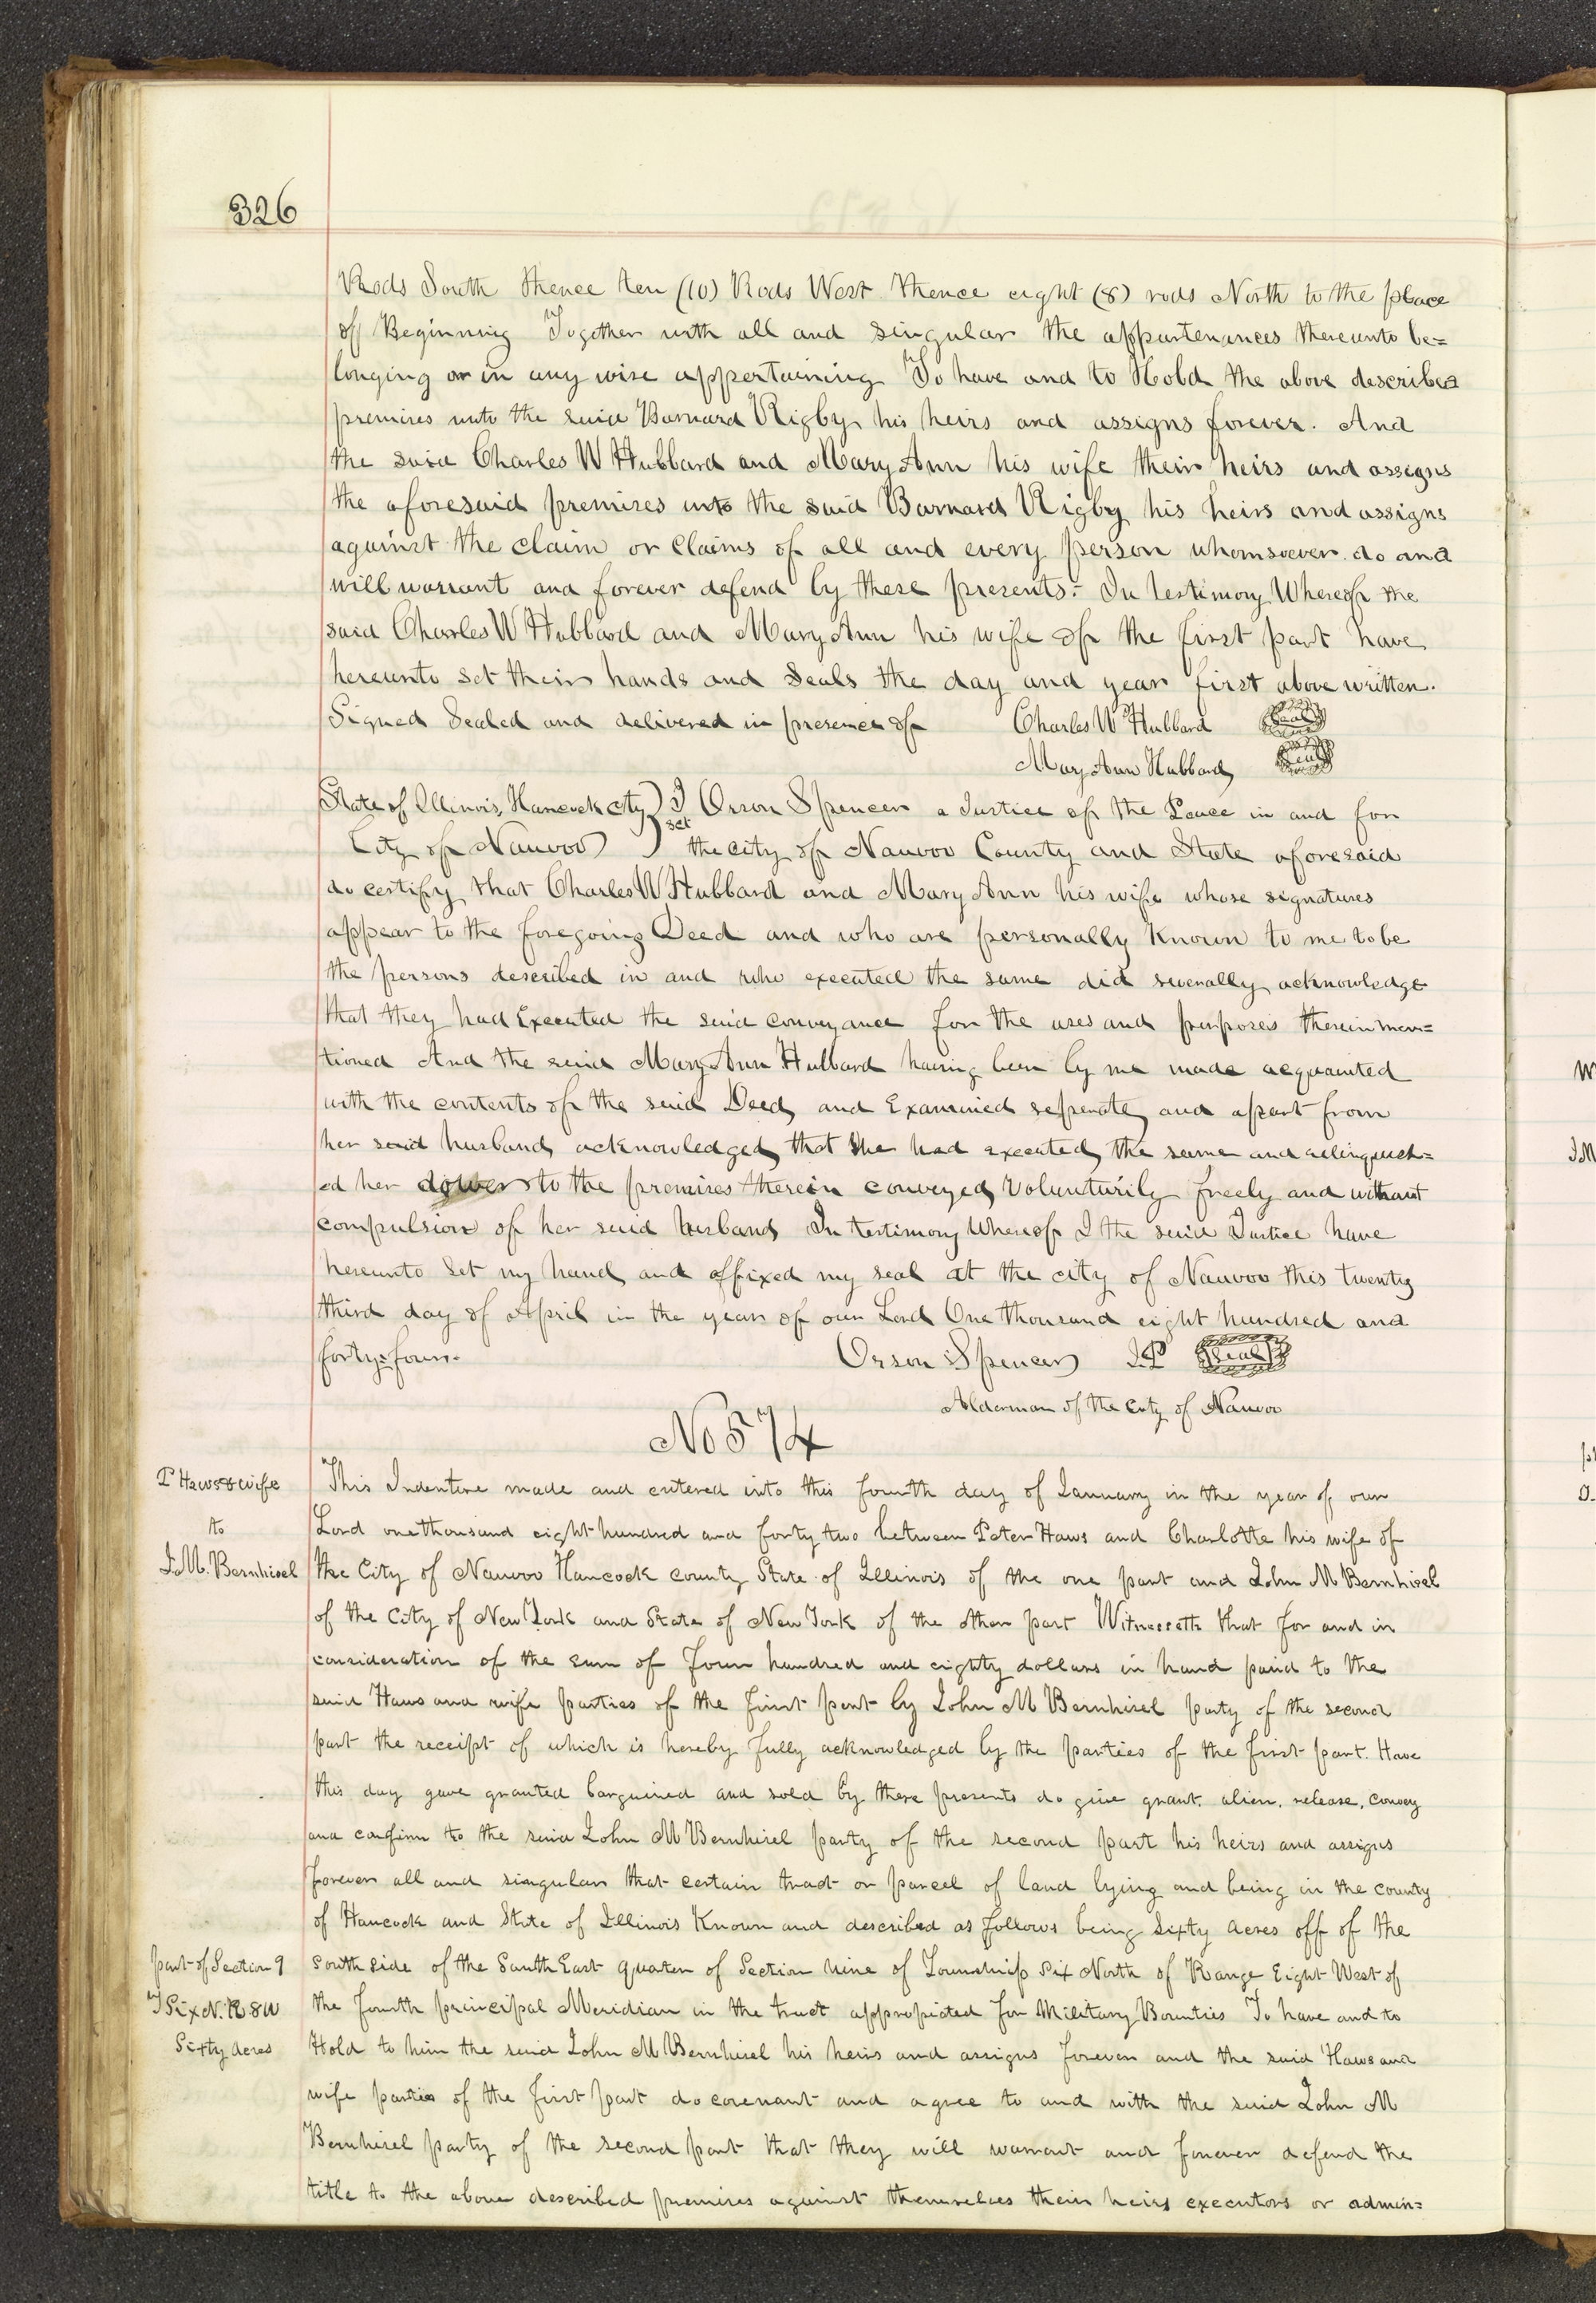 326
Rods South thence ten (10) Rods West thence eight (8) rods North to the place
of Beginning Together with all and singular the appurtenances thereunto be=
longing or in any wise appertaining To have and to Hold the above described
premises unto the said Barnard Rigby his heirs and assigns forever. And
the said Charles W Hubbard and Mary Ann his wife their heirs and assigns
the aforesaid premises unto the said Barnard Rigby his heirs and assigns
against the claim or Claims of all and every person whomsoever do and
will warrant and forever defend by these presents:- In testimony Whereof the
said Charles W Hubbard and Mary Ann his wife of the first part have
hereunto set their hands and seals the day and year first above written.
Signed Sealed and delivered in presence of Charles W Hubbard Seal
Mary Ann Hubbard Seal
State of Illinois, Hancock cty) I Orson Spencer a Justice of the Peace in and for
City of Nauvoo ) sct the city of Nauvoo County and State aforesaid
do certify that Charles W Hubbard and Mary Ann his wife whose signatures
appear to the foregoing Deed and who are personally Known to me to be
the persons described in and who executed the same did severally acknowledge
that they had Executed the said conveyance for the uses and purposes therein men=
tioned And the said Mary Ann Hubbard having been by me made acquainted
with the contents of the said Deed, and Examined seperate, and apart from
her said husband, acknowledged, that she had executed, the same and relinquish=
ed her dower to the premises therein conveyed, Volunturily freely and without
compulsion of her said husband In testimony Whereof I the said Justice have
hereunto Set my hand, and affixed my seal at the city of Nauvoo this twenty
third day of April in the year of our Lord One thousand eight hundred and
forty=four. Orson Spencer J.P Seal
Alderman of the City of Nauvoo
No 574
P Haws & wife
to
J. M. Bernhisel
This Indenture made and entered into this fourth day of January in the year of our
Lord one thousand eight hundred and forty two between Peter Haws and Charlotte his wife of
the City of Nauvoo Hancock county State of Illinois of the one part and John M Bernhisel
of the City of New York and State of New York of the other part Witnesseth that for and in
consideration of the sum of four hundred and eighty dollars in hand paid to the
said Haws and wife parties of the first part by John M Bernhisel party of the second
part the receipt of which is hereby fully acknowledged by the parties of the first part. Have
this day gave granted barguined and sold by these presents do give grant. alien. release, convey
and confirm to the said John M Bernhisel party of the second part his heirs and assigns
forever all and singular that certain tract or parcel of land lying and being in the county
of Hancock and State of Illinois Known and described as follows being Sixty Acres off of the
part of Section 9
T Six N. R 8 W
Sixty Acres
south side of the South East quarter of Section nine of Township Six North of Range Eight West of
the fourth principal Meridian in the tract appropiated for Military Bounties To have and to
Hold to him the said John M Bernhisel his heirs and assigns forever and the said Haws and
wife parties of the first part do covenant and agree to and with the said John M
Bernhisel party of the second part that they will warrant and forever defend the
title to the above described premises against themselves their heirs executors or admin=